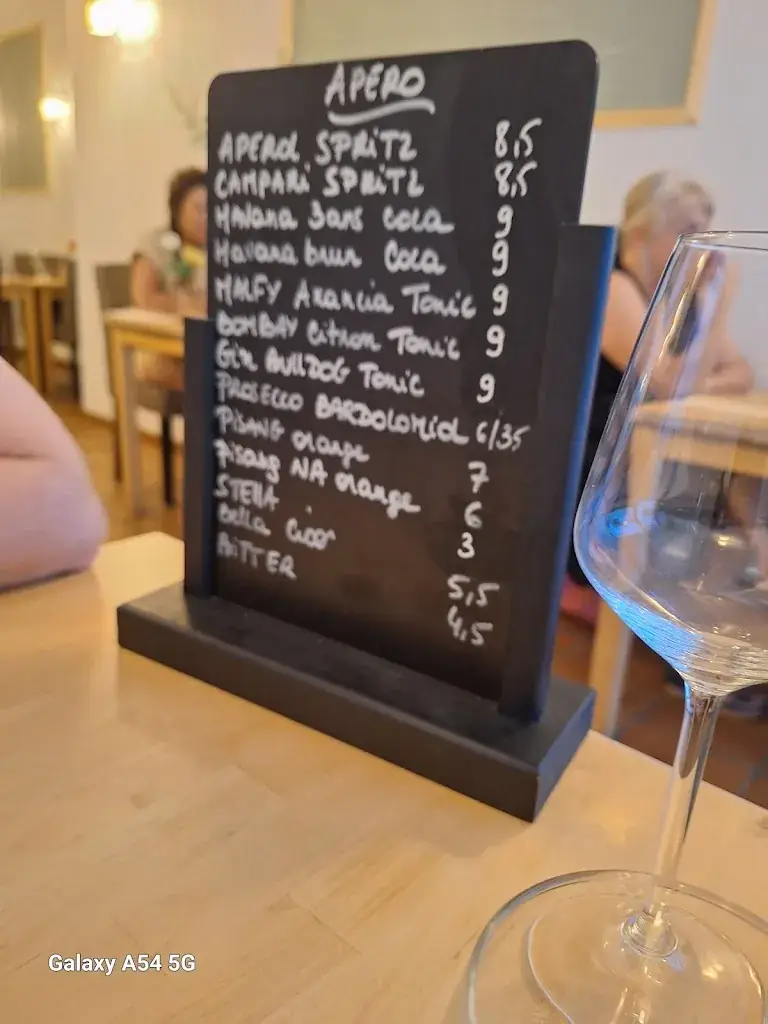 APERO
APEROL SPRITZ 8,5
CAMPARI SPRITZ 8,5
HAVANA 3ans Coca 9
Havana brun Coca 9
MALFY Arancia Tonic 9
BOMBAY Citron Tonic 9
Gin BULLDOG Tonic 9
PROSECCO 6/35
PISANG orange 7
Pisang NA orange 6
STELLA 3
Bella 5,5
BITTER 4,5
Galaxy A54 5G